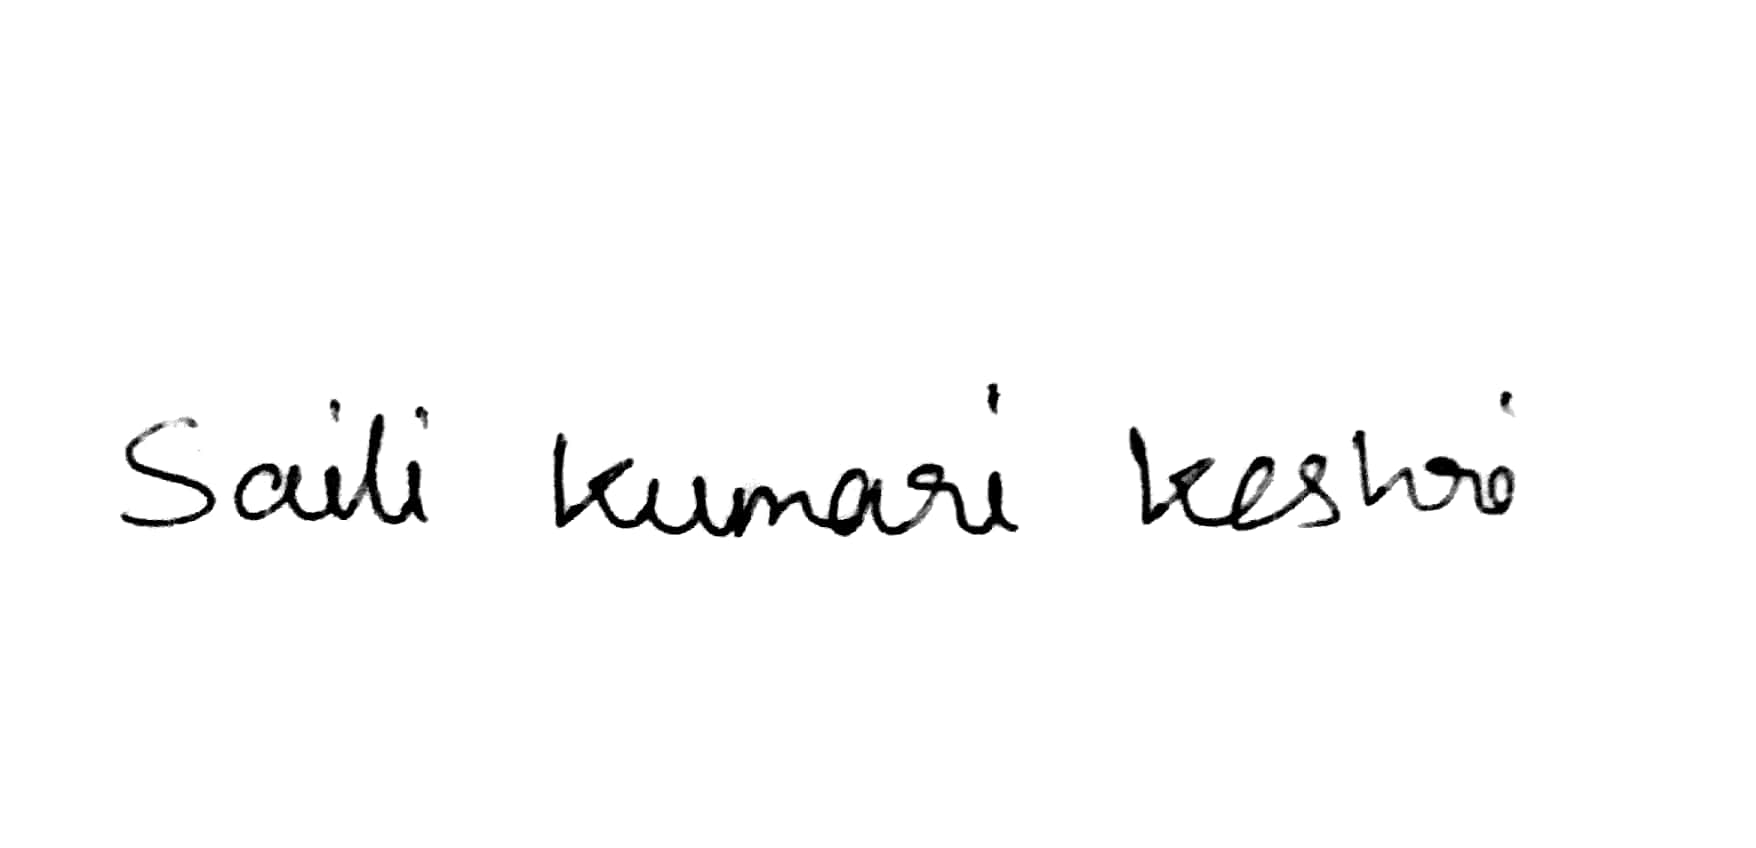 Saili kumari keshri